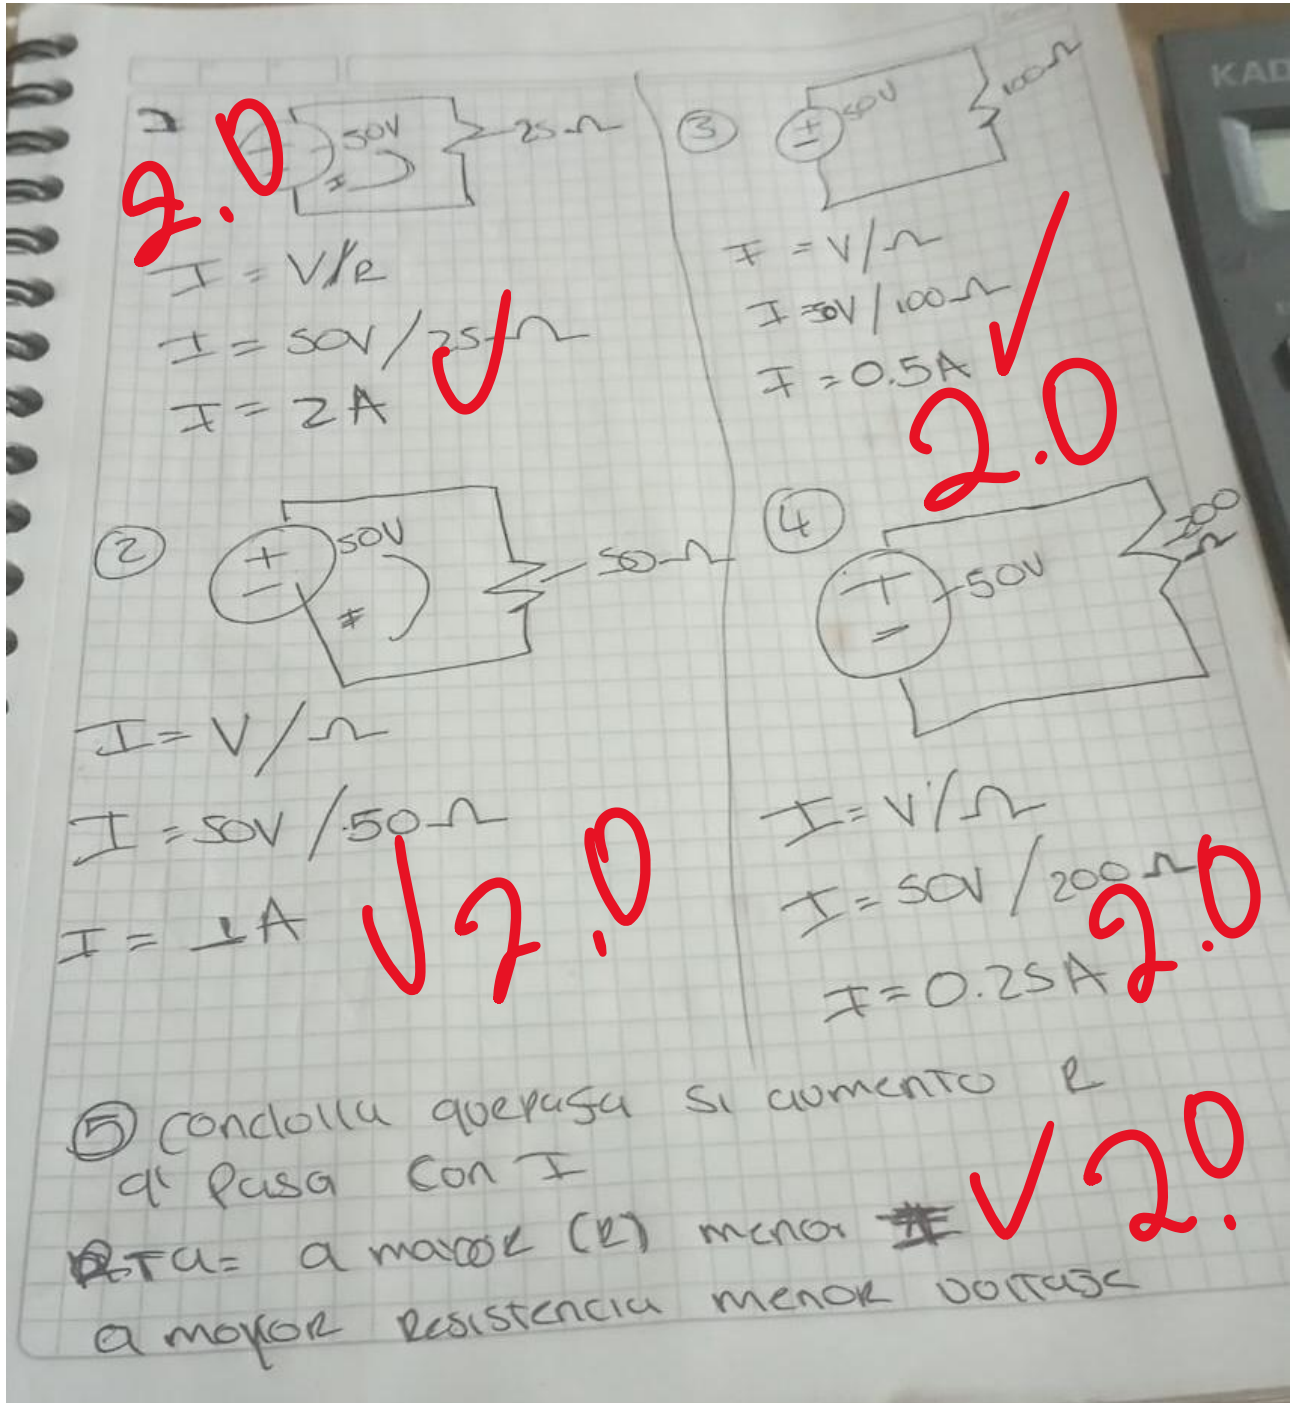 1
50V
25Ω
2.0
I
I = V/R
I = 50V/25Ω
I = 2A
②
50V
50Ω
I
I = V/Ω
I = 50V/50Ω
I = 1A
2.0
③
50V
100Ω
I = V/Ω
I = 50V/100Ω
I = 0.5A
2.0
④
50V
200
Ω
I = V/Ω
I = 50V/200Ω
I = 0.25A
2.0
⑤ Conclolla quepasa si aumento R
q' pasa con I
RTa= a mayor (R) menor I
2.0
a mayor Resistencia menor voltaje
KAD